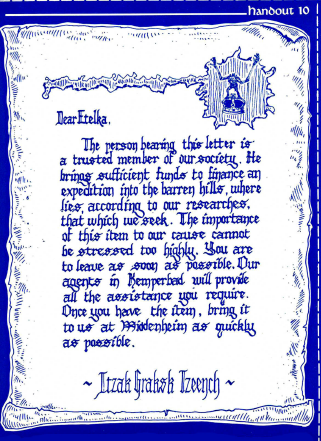 Handout 10
Dear Etelka,
The person bearing this letter is
a trusted member of our society. He
brings sufficient funds to finance an
expedition into the barren hills, where
lies, according to our researches,
that which we seek. The importance
of this item to our cause cannot
be stressed too highly. You are
to leave as soon as possible. Our
agents in Kemperbad will provide
all the assistance you require.
Once you have the item, bring it
to us at Middenheim as quickly
as possible.
~ Itzak Graksk Tzeench ~